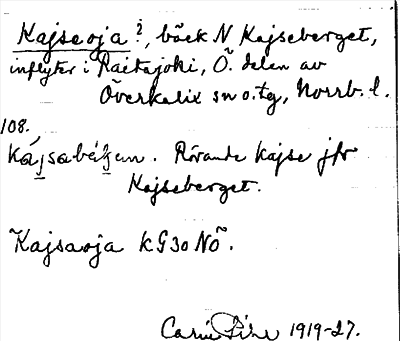 Kajseoja?, bäck N Kajseberget,
inflyter i Raitajoki, Ö. delen av
Överkalix sn o. tg, Norrb. l.
108.
Kajsabäkken. Rörande Kajse jfr
Kajseberget.
Kajsaoja KG30 NÖ.
Carin Pihl 1919-27.